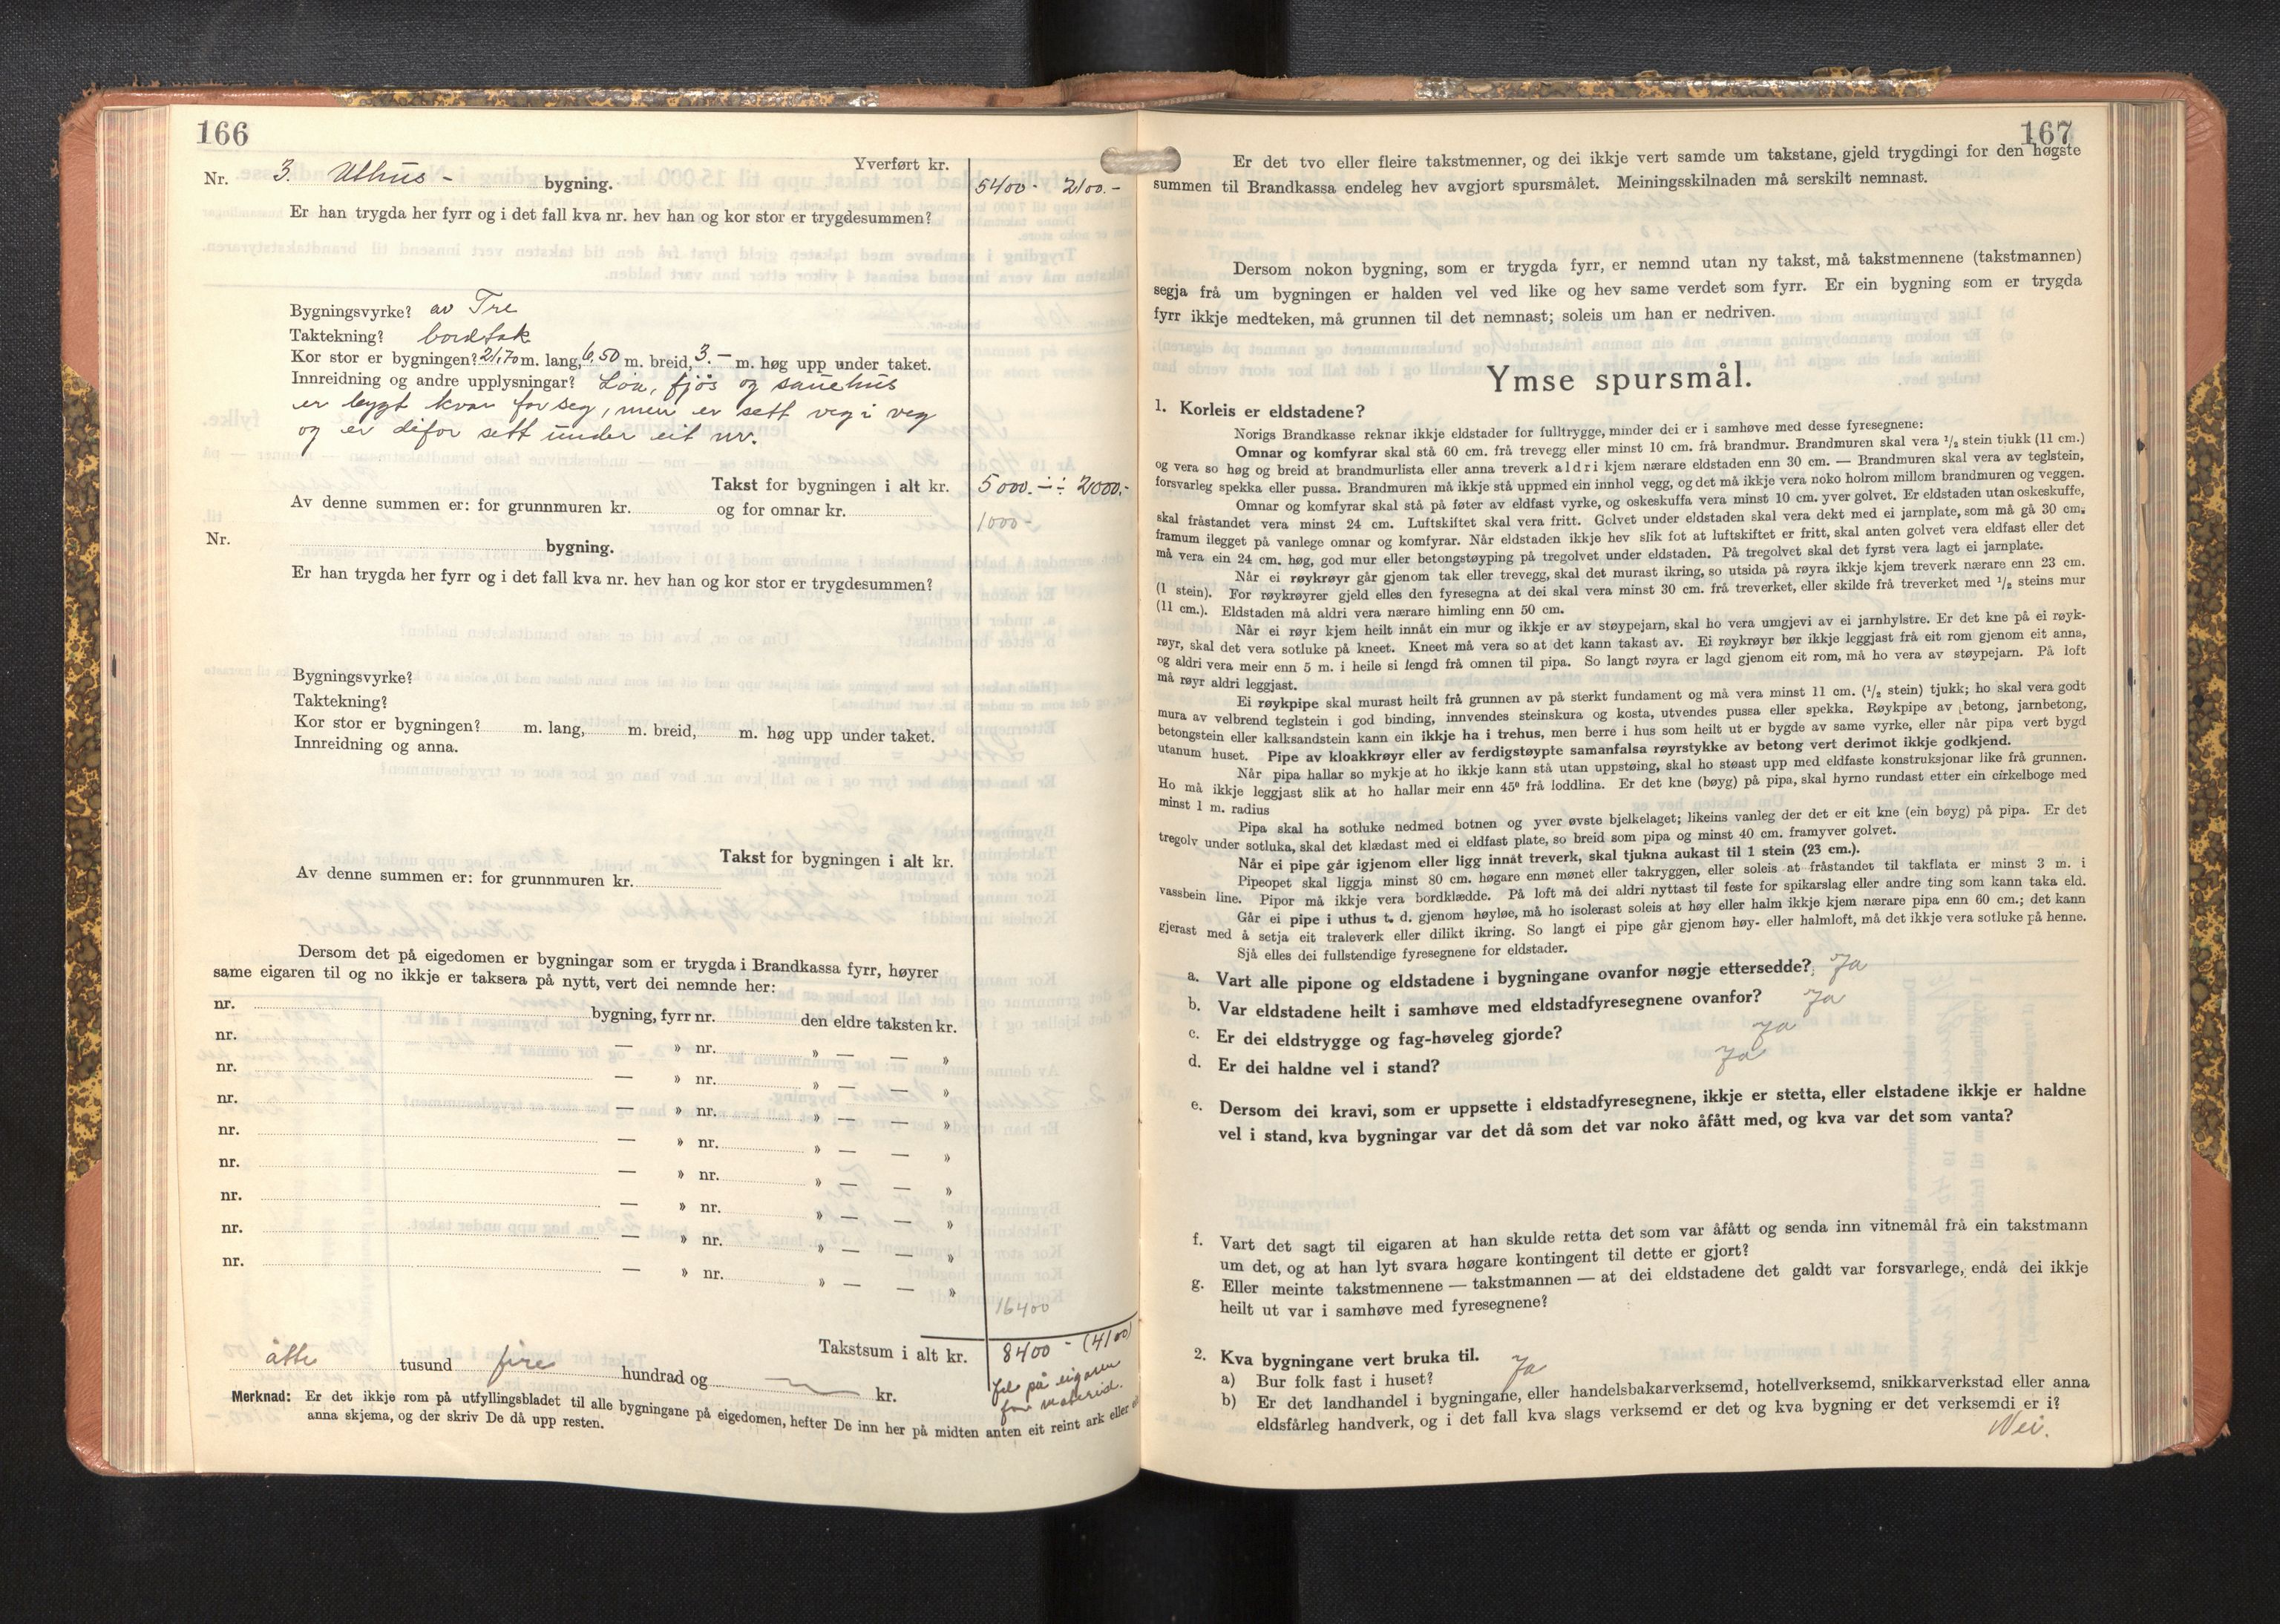 166
Yverført kr.
Nr. 3. Uthus - bygning. 5400- 2100.-
Er han trygda her fyrr og i det fall kva nr. hev han og kor stor er trygdesummen?
Bygningsvyrke? av Tre
Taktekning? bordtak
Kor stor er bygningen? 21,70 m. lang, 6,50 m. breid, 3.- m. høg upp under taket.
Innreidning og andre upplysningar? Löa, fjös og sauehus
er bygt kvar for seg, men er sett veg i veg
og er difor sett under eit nr.
Takst for bygningen i alt kr. 5000.- ÷ 2000.-
Av denne summen er: for grunnmuren kr. og for omnar kr. 1000-
Nr. bygning.
Er han trygda her fyrr og i det fall kva nr. hev han og kor stor er trygdesummen?
Bygningsvyrke?
Taktekning?
Kor stor er bygningen? m. lang, m. breid, m. høg upp under taket.
Innreidning og anna.
Takst for bygningen i alt kr.
Av denne summen er: for grunnmuren kr.
Dersom det på eigedomen er bygningar som er trygda i Brandkassa fyrr, høyrer
same eigaren til og no ikkje er taksera på nytt, vert dei nemnde her:
nr. bygning, fyrr nr. den eldre taksten kr.
nr. — » nr. » — — »
nr. — » nr. » — — »
nr. — » nr. » — — »
nr. — » nr. » — — »
nr. — » nr. » — — »
nr. — » nr. » — — »
nr. — » nr. » — — »
nr. — » nr. » — — »
16400
Takstsum i alt kr. 8400 - (4100)
åtte tusund fire hundrad og kr.
på eigaren
Merknad: Er det ikkje rom på utfyllingsbladet til alle bygningane på eigedomen, hefter De inn her på midten anten eit reint ark eller
anna skjema, og der skriv De då upp resten.
167
Er det tvo eller fleire takstmenner, og dei ikkje vert samde um takstane, gjeld trygdingi for den høgste
summen til Brandkassa endeleg hev avgjort spursmålet. Meiningsskilnaden må serskilt nemnast.
Dersom nokon bygning, som er trygda fyrr, er nemnd utan ny takst, må takstmennene (takstmannen)
segja frå um bygningen er halden vel ved like og hev same verdet som fyrr. Er ein bygning som er trygda
fyrr ikkje medteken, må grunnen til det nemnast; soleis um han er nedriven.
Ymse spursmål.
1. Korleis er eldstadene?
Norigs Brandkasse reknar ikkje eldstader for fulltrygge, minder dei er i samhøve med desse fyresegnene:
Omnar og komfyrar skal stå 60 cm. frå trevegg eller minst 10 cm. frå brandmur. Brandmuren skal vera ½ stein tjukk (11 cm.)
og vera so høg og breid at brandmurlista eller anna treverk aldri kjem nærare eldstaden enn 30 cm. — Brandmuren skal vera av teglstein,
forsvarleg spekka eller pussa. Brandmuren må ikkje stå uppmed ein innhol vegg, og det må ikkje vera noko holrom millom brandmuren og veggen.
Omnar og komfyrar skal stå på føter av eldfast vyrke, og oskeskuffa vera minst 10 cm. yver golvet. Er eldstaden utan oskeskuffe,
skal fråstandet vera minst 24 cm. Luftskiftet skal vera fritt. Golvet under eldstaden skal vera dekt med ei jarnplate, som må gå 30 cm.
framum ilegget på vanlege omnar og komfyrar. Når eldstaden ikkje hev slik fot at luftskiftet er fritt, skal anten golvet vera eldfast eller det
må vera ein 24 cm. høg, god mur eller betongstøyping på tregolvet under eldstaden. På tregolvet skal det fyrst vera lagt ei jarnplate.
Når ei røykrøyr går gjenom tak eller trevegg, skal det murast ikring, so utsida på røyra ikkje kjem treverk nærare enn 23 cm.
(1 stein). For røykrøyrer gjeld elles den fyresegna at dei skal vera minst 30 cm. frå treverket, eller skilde frå treverket med ½ steins mur
(11 cm.). Eldstaden må aldri vera nærare himling enn 50 cm.
Når ei røyr kjem heilt innåt ein mur og ikkje er av støypejarn, skal ho vera umgjevi av ei jarnhylstre. Er det kne på ei røyk-
røyr, skal det vera sotluke på kneet. Kneet må vera so at det kann takast av. Ei røykrøyr bør ikkje leggjast frå eit rom gjenom eit anna,
og aldri vera meir enn 5 m. i heile si lengd frå omnen til pipa. So langt røyra er lagd gjenom eit rom, må ho vera av støypejarn. På loft
må røyr aldri leggjast.
Ei røykpipe skal murast heilt frå grunnen av på sterkt fundament og må vera minst 11 cm. (½ stein) tjukk; ho skal vera godt
mura av velbrend teglstein i god binding, innvendes steinskura og kosta, utvendes pussa eller spekka. Røykpipe av betong, jarnbetong,
betongstein eller kalksandstein kann ein ikkje ha i trehus, men berre i hus som heilt ut er bygde av same vyrke, eller når pipa vert bygd
utanum huset. Pipe av kloakkrøyr eller av ferdigstøypte samanfalsa røyrstykke av betong vert derimot ikkje godkjend.
Når pipa hallar so mykje at ho ikkje kann stå utan uppstøing, skal ho støast upp med eldfaste konstruksjonar like frå grunnen.
Ho må ikkje leggjast slik at ho hallar meir enn 45° frå loddlina. Er det kne (bøyg) på pipa, skal hyrno rundast etter ein cirkelboge med
minst 1 m. radius
Pipa skal ha sotluke nedmed botnen og yver øvste bjelkelaget; likeins vanleg der det er eit kne (ein bøyg) på pipa. Er det
tregolv under sotluka, skal det klædast med ei eldfast plate, so breid som pipa og minst 40 cm. framyver golvet.
Når ei pipe går igjenom eller ligg innåt treverk, skal tjukna aukast til 1 stein (23 cm.).
Pipeopet skal liggja minst 80 cm. høgare enn mønet eller takryggen, eller soleis at fråstandet til takflata er minst 3 m. i
vassbein line. Pipor må ikkje vera bordklædde. På loft må dei aldri nyttast til feste for spikarslag eller andre ting som kann taka eld.
Går ei pipe i uthus t. d. gjenom høyløe, må ho isolerast soleis at høy eller halm ikkje kjem nærare pipa enn 60 cm.; det kann
gjerast med å setja eit traleverk eller dilikt ikring. So langt ei pipe går gjenom høy- eller halmloft, må det ikkje vera sotluke på henne.
Sjå elles dei fullstendige fyresegnene for eldstader.
a. Vart alle pipone og eldstadene i bygningane ovanfor nøgje ettersedde? Ja
b. Var eldstadene heilt i samhøve med eldstadfyresegnene ovanfor? Ja
c. Er dei eldstrygge og fag-høveleg gjorde? Ja
d. Er dei haldne vel i stand? Ja
e. Dersom dei kravi, som er uppsette i eldstadfyresegnene, ikkje er stetta, eller elstadene ikkje er haldne
vel i stand, kva bygningar var det då som det var noko åfått med, og kva var det som vanta?
f. Vart det sagt til eigaren at han skulde retta det som var åfått og senda inn vitnemål frå ein takstmann
um det, og at han lyt svara høgare kontingent til dette er gjort?
g. Eller meinte takstmennene — takstmannen — at dei eldstadene det galdt var forsvarlege, endå dei ikkje
heilt ut var i samhøve med fyresegnene?
2. Kva bygningane vert bruka til.
a) Bur folk fast i huset? Ja
b) Er det landhandel i bygningane, eller handelsbakarverksemd, hotellverksemd, snikkarverkstad eller anna
eldsfårleg handverk, og i det fall kva slags verksemd er det og kva bygning er det verksemdi er i?
Nei.